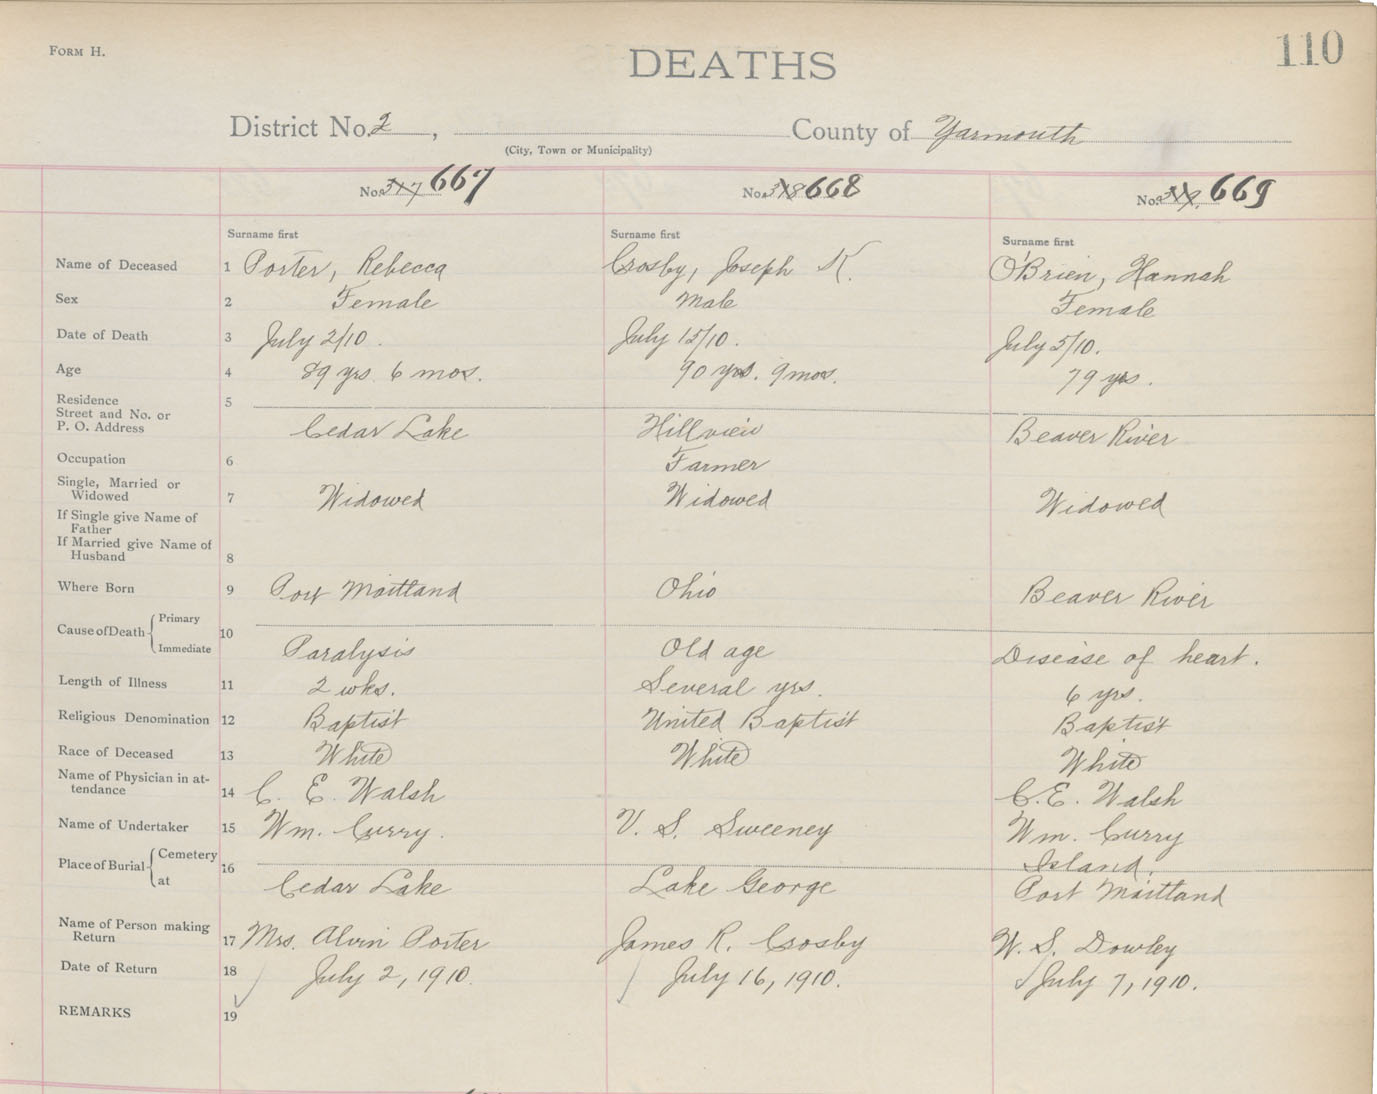 FORM H.
DEATHS
110
District No. 2 , County of Yarmouth
(City, Town or Municipality)
No. 317 667 No. 318 668 No. 319 669
Surname first Surname first Surname first
Name of Deceased 1 Porter, Rebecca Crosby, Joseph K. O'Brien, Hannah
Sex 2 Female Male Female
Date of Death 3 July 2/10. July 15/10. July 5/10.
Age 4 89 yrs 6 mos. 90 yrs. 9 mos. 79 yrs.
Residence 5
Street and No. or
P. O. Address Cedar Lake Hillview Beaver River
Occupation 6 Farmer
Single, Married or
Widowed 7 Widowed Widowed Widowed
If Single give Name of
Father
If Married give Name of
Husband 8
Where Born 9 Port Maitland Ohio Beaver River
Cause of Death Primary
10
Immediate Paralysis Old age Disease of heart.
Length of Illness 11 2 wks. Several yrs. 6 yrs.
Religious Denomination 12 Baptist United Baptist Baptist
Race of Deceased 13 White White White
Name of Physician in at-
tendance 14 C. E. Walsh C. E. Walsh
Name of Undertaker 15 Wm. Curry. V. S. Sweeney Wm. Curry
Place of Burial Cemetery 16 Island,
at Cedar Lake Lake George Port Maitland
Name of Person making
Return 17 Mrs. Alvin Porter James R. Crosby W. S. Dowley
Date of Return 18 July 2, 1910. July 16, 1910. July 7, 1910.
REMARKS 19